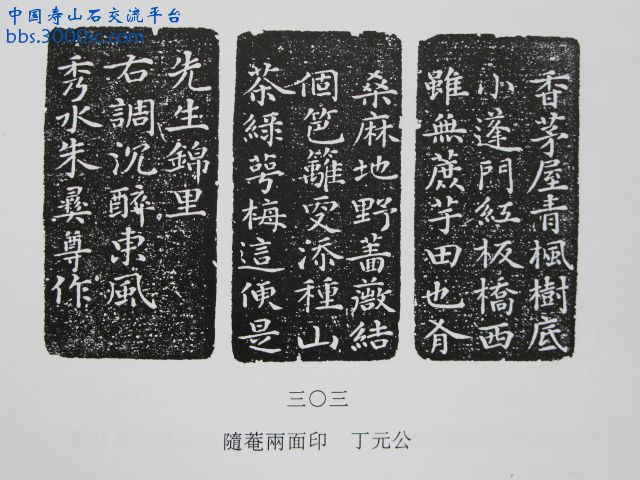 中国寿山石交流平台
bbs.3000sc.com
香茅屋青楓樹底
小蓬門紅板橋西
雖無蔗芋田也有
桑麻地野薔薇結
個笆籬更添種山
茶綠萼梅這便是
先生錦里
右調沉醉東風
秀水朱彞尊作
三〇三
隨菴兩面印　丁元公